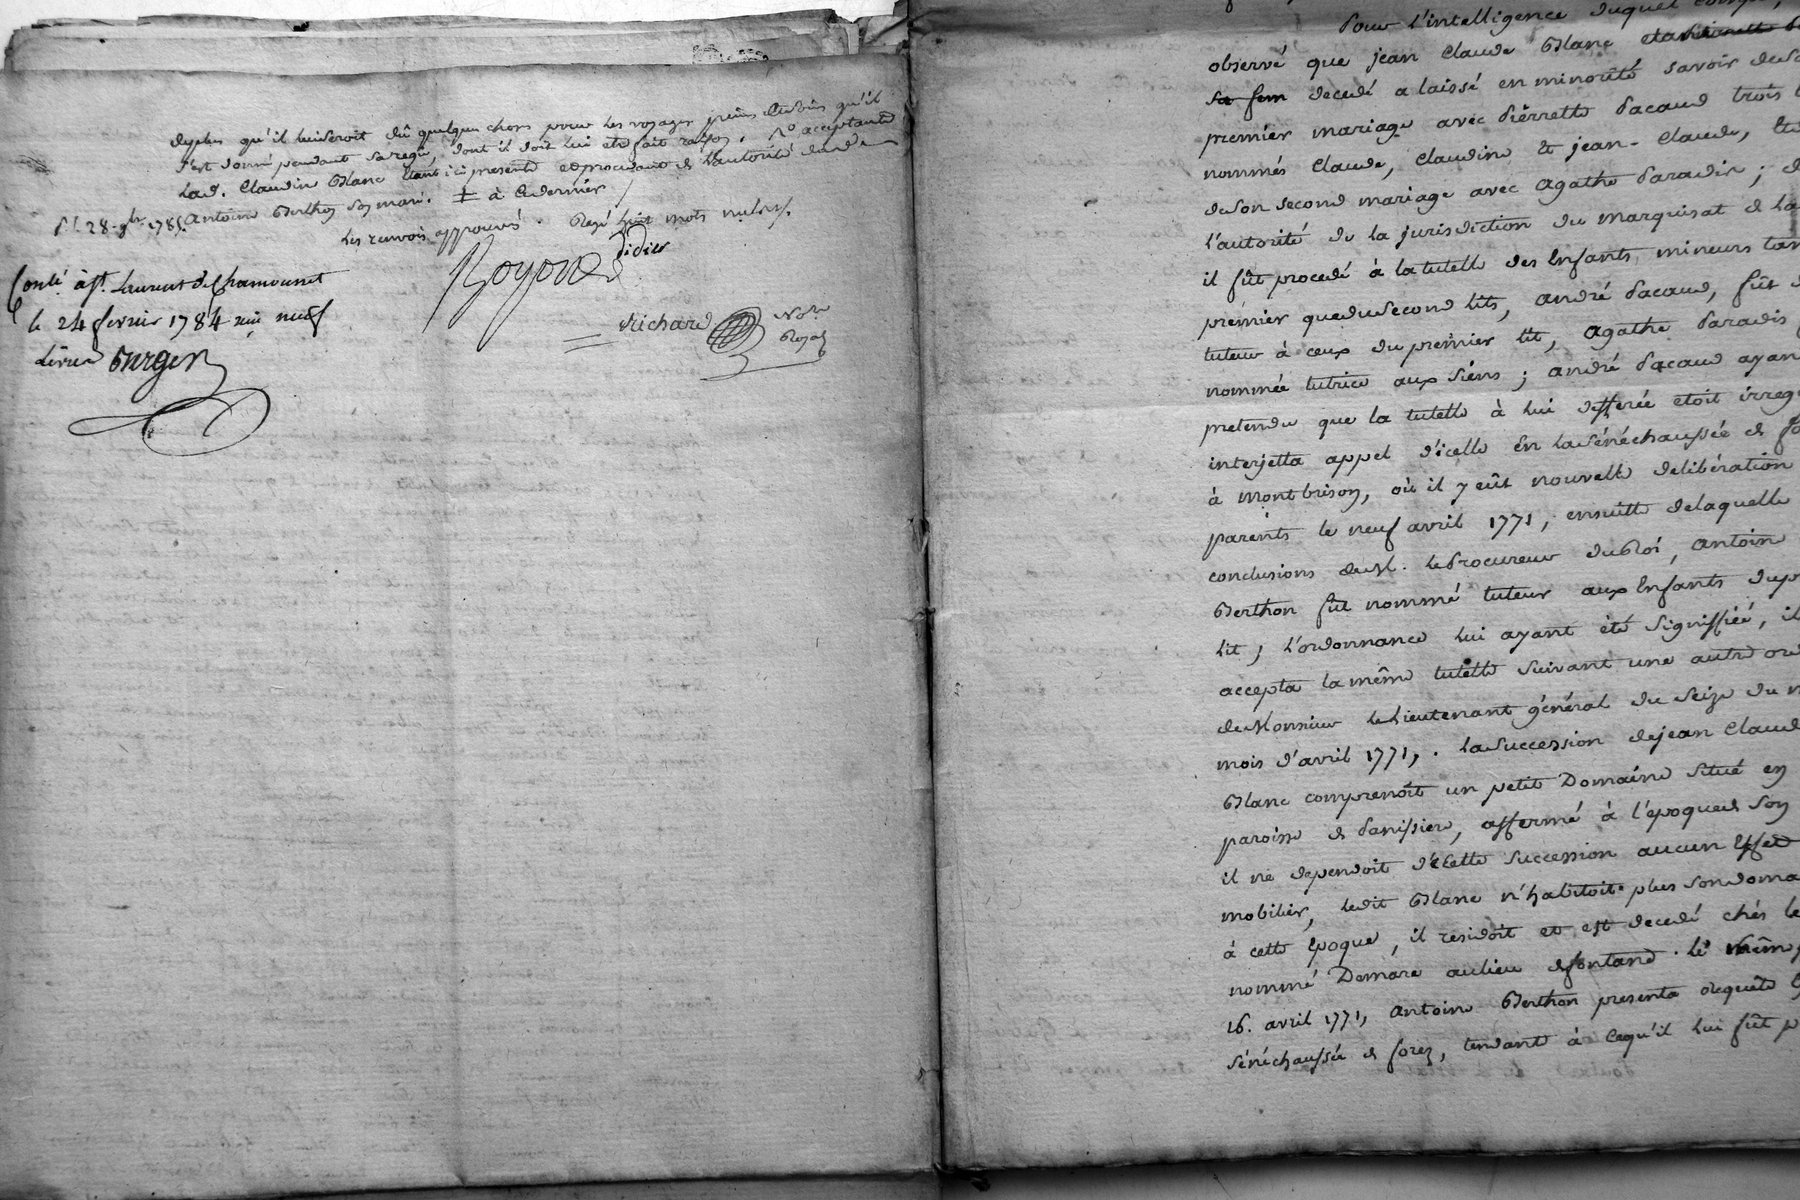 deplus qu'il lui seroit dû quelque chose pour les voyages peines et soins qu'il
s'est donné pendant sa regie, dont il doit lui etre fait raison. acceptant
lad. Claudine Blanc etant ici presente et procedant de l'autorité dud.
Antoine Berthon son mari. ‡ à ce dernier /
28. 9bre 1785.
les renvois approuvés. Rayé huit mots nuls.
Didier
Royon
Conlé à St. Laurent de Chamousset
le 24 fevrier 1784 neuf
Richard Nore
Royal
Livres Burger
Pour l'intelligence duquel compte,
observé que jean Claude Blanc
sa fem decedé a laissé en minorité savoir de so
premier mariage avec Pierrette Pacaud trois
nommés Claude, Claudine & jean-Claude, &
de son second mariage avec Agathe Paradis; d
l'autorité de la jurisdiction du marquisat de la
il fût procedé à la tutelle des Enfants mineurs tan
premier que du second lits, andré Pacaud, fût
tuteur à ceux du premier lit, Agathe Paradis
nommée tutrice aux siens; andré Pacaud ayan
pretendu que la tutelle à lui defferée etoit irreg
interjetta appel d'icelle En la Sénéchaussée de fo
à Montbrison, où il y eût nouvelle delibération
parents le neuf avril 1771, ensuitte de laquelle
conclusions de M. le Procureur du Roi, Antoine
Berthon fût nommé tuteur aux Enfants du p
lit; l'ordonnance lui ayant été signiffiée, il
accepta la même tutelle suivant une autre or
de Monsieur le Lieutenant général du seize du m
mois d'avril 1771,. la succession de jean Claud
Blanc comprenoit un petit Domaine situé en
paroisse de Panissiere, affermé à l'époque de son
il ne dependoit d'icelle succession aucun Effet
mobilier, ledit Blanc n'habitoit plus son doma
à cette époque, il residoit et est decedé chés le
nommé Demare au lieu de fontane. le même
16. avril 1771, Antoine Berthon presenta requête
Sénéchaussée de forez, tendante à ce qu'il lui fût p